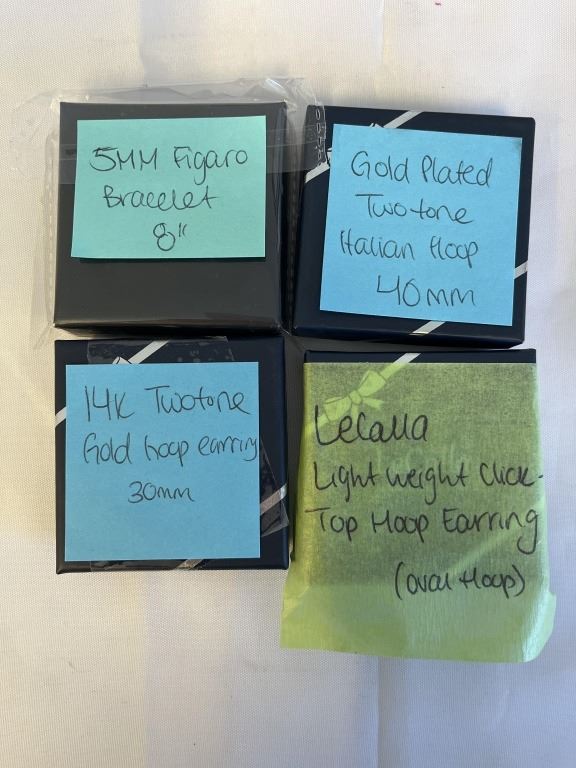 5MM Figaro
Bracelet
8"
Gold Plated
Twotone
Italian Hoop
40mm
14K Twotone
Gold hoop earring
30mm
LeCalla
Light weight Click-
Top Hoop Earring
(oval Hoop)